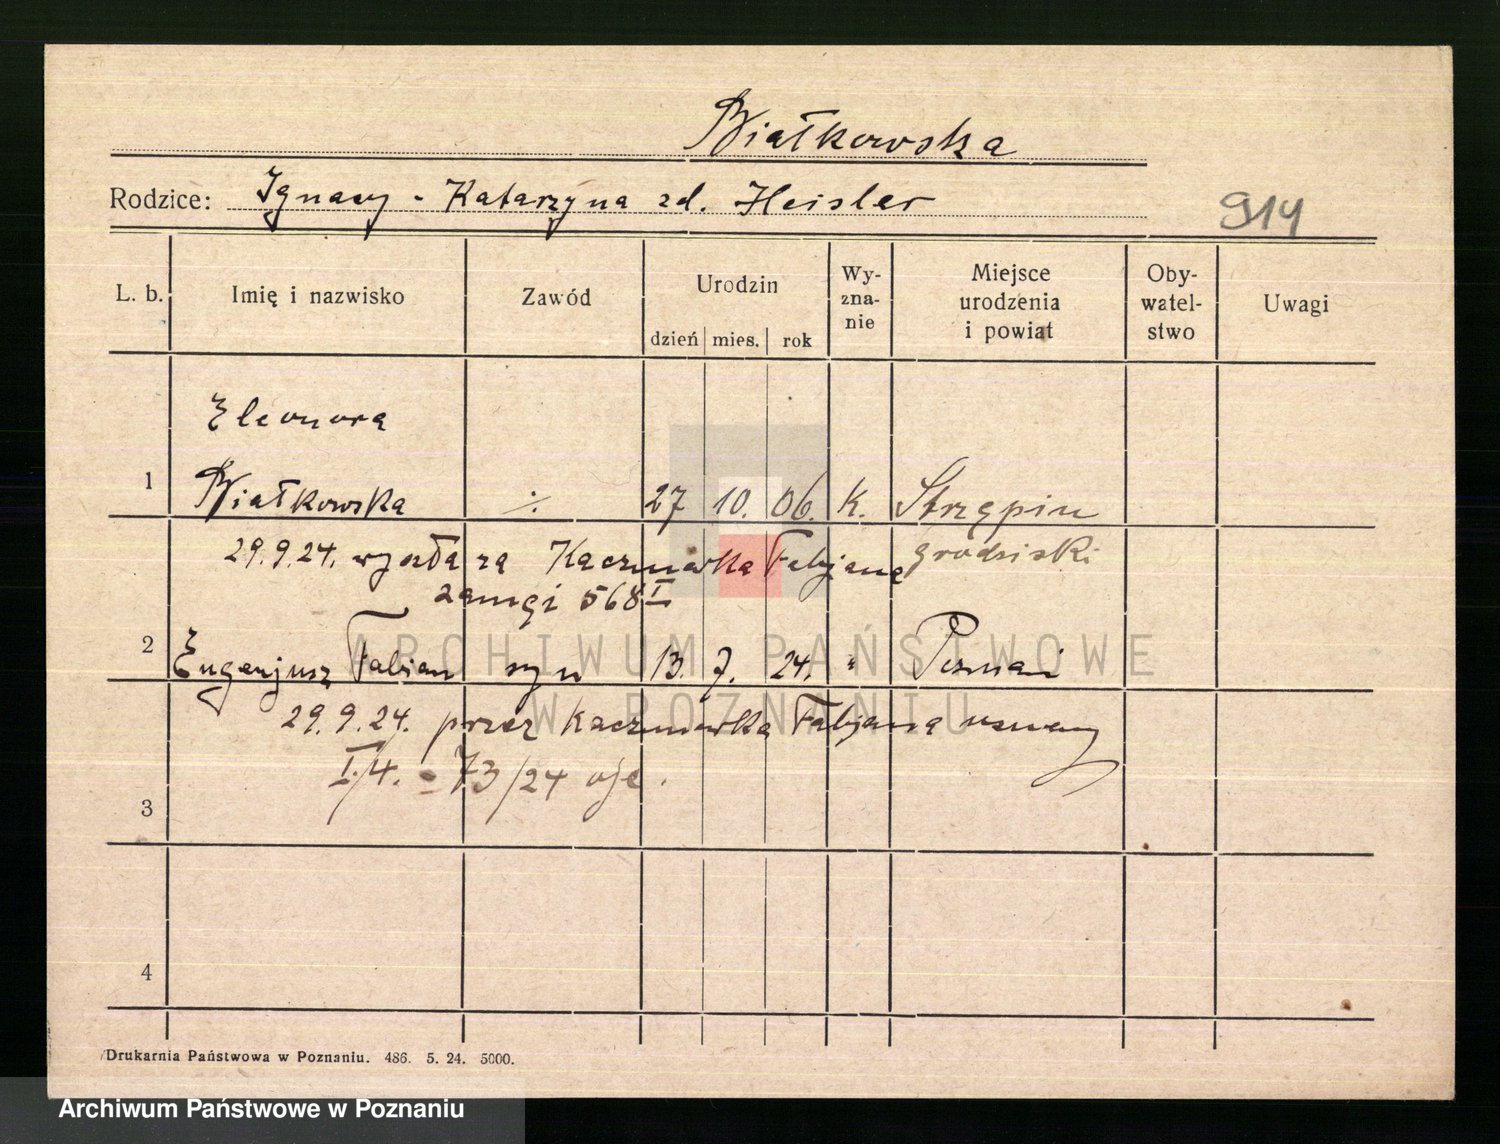 Białkowska
Rodzice: Ignacy - Katarzyna zd. Heisler
914
L. b. Imię i nazwisko Zawód Urodzin dzień mies. rok Wy-zna-nie Miejsce urodzenia i powiat Oby-watel-stwo Uwagi
Eleonora
1 Białkowska ·/· 27 10. 06. k. Strzępin
29.9.24. wyszła za Kaczmarka Fabjana grodziski
568 I
2 Eugenjusz Fabian syn 13. 7. 24. " Poznań
29.9.24. przez Kaczmarka Fabjana uznany
I/4. - 73/24
3
4
ARCHIWUM PAŃSTWOWE
W POZNANIU
Drukarnia Państwowa w Poznaniu. 486. 5. 24. 5000.
Archiwum Państwowe w Poznaniu